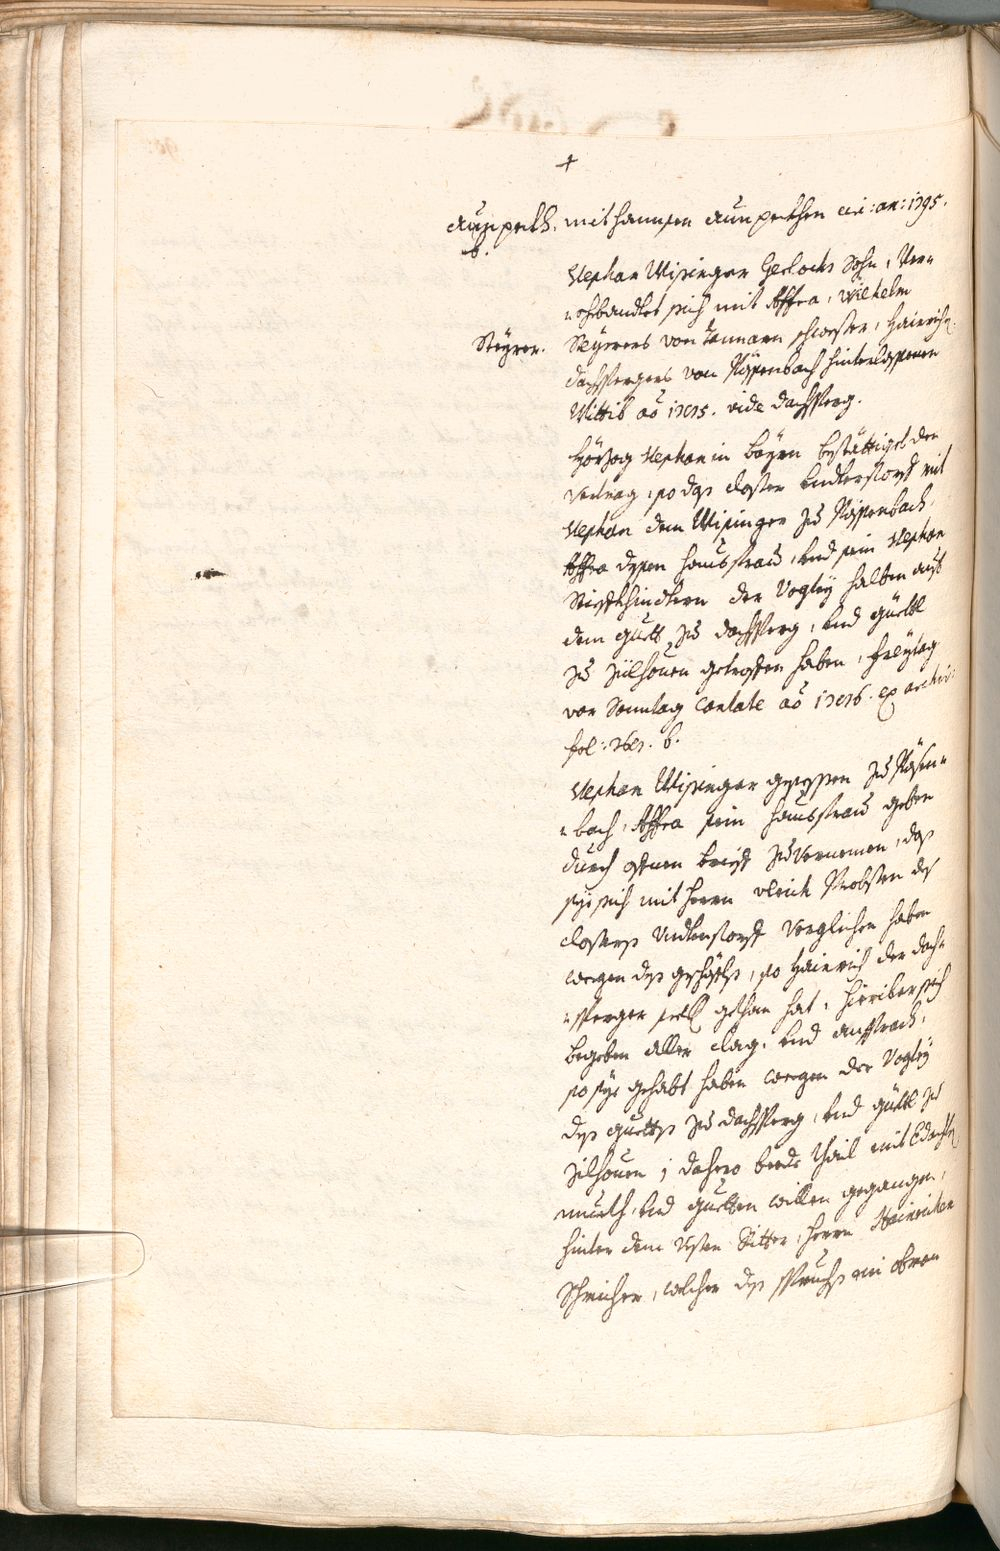 +
Aunpekh. mit Hannsen Aunpekhen circ: an: 1395.
b.
Stephan Wisinger Gerlochs Sohn, Ver=
=ehbandlet sich mit Affra, Wilhelm
Steyrer. Steyrers von Tannarn schwester, Hainrichs
Dachspergers von Päsenbach hinterlassenen
Wittib aõ 1415. vide Dachsperg.
Herzog Stephan in Bayrn bestättiget den
Vertrag, so das Closter Undterstorf mit
Stephan dem Wisinger zu Päsenbach,
Affra dessen hausfrau, und sein Stephan
Stiefkhindtern der Vogtey halben auß
dem guett zu Dachsperg, und guettl
zu Zilhouen getroffen haben, Freytag
vor Sonntag Cantate aõ 1416. ex archiv:
fol: b.
Stephan Wisinger gesessen zu Päsen=
=bach, Affra sein hausfrau geben
durch offnen brieff zu vernemen, das
sye sich mit herrn Ulrich Probsten des
Closters Undterstorf verglichen haben
wegen des geschäffts, so Hainrich der Dach=
=sperger seel. gethan hat, hieriber sich
begeben aller Clag, und ansprach,
so sye gehabt haben wegen der Vogtey
des guetts zu Dachsperg, und güettl zu
Zilhouen; dahero beede thail mit bedachtem
mueth, und guetten willen gegangen,
hinter dem Vesten Ritter, herrn Hainrichen
welcher des spruchs ein obman